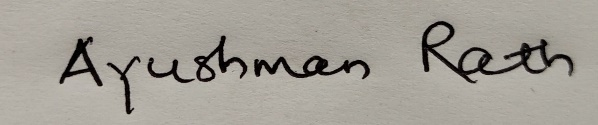 Ayushman Rath